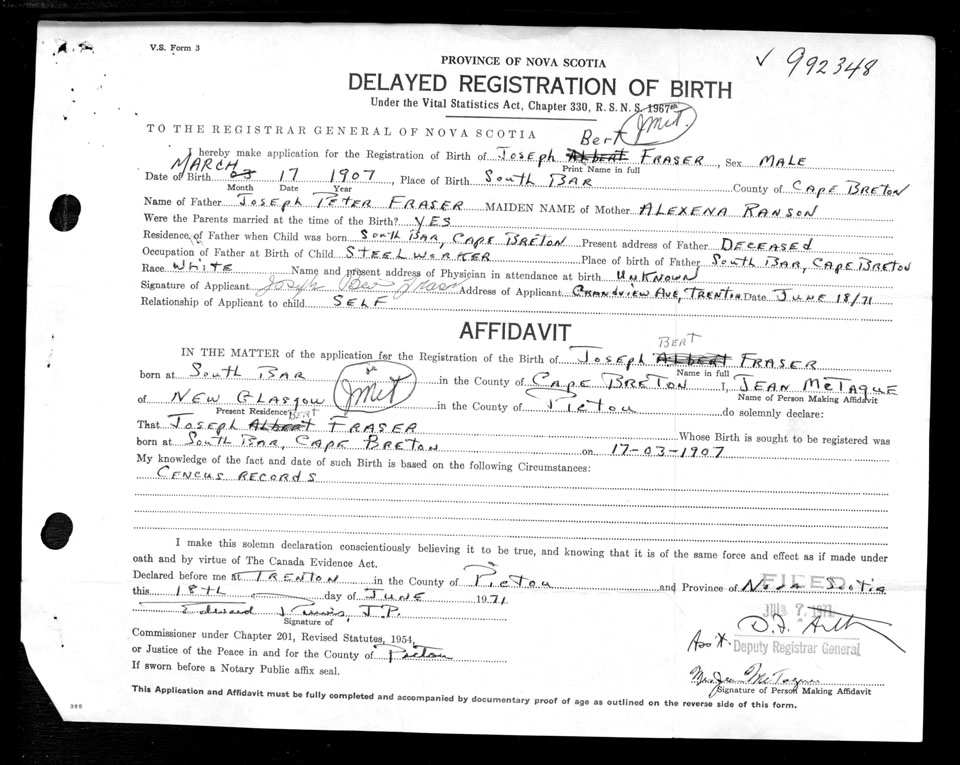 V.S. Form 3
✓ 992348
PROVINCE OF NOVA SCOTIA
DELAYED REGISTRATION OF BIRTH
Under the Vital Statistics Act, Chapter 330, R.S.N.S. 1967
TO THE REGISTRAR GENERAL OF NOVA SCOTIA
Bert JMcT.
I hereby make application for the Registration of Birth of JOSEPH ALBERT FRASER, Sex MALE
Print Name in full
MARCH
Date of Birth 03 17 1907, Place of Birth SOUTH BAR County of CAPE BRETON
Month Date Year
Name of Father JOSEPH PETER FRASER MAIDEN NAME of Mother ALEXENA RANSON
Were the Parents married at the time of the Birth? YES
Residence of Father when Child was born SOUTH BAR, CAPE BRETON Present address of Father DECEASED
Occupation of Father at Birth of Child STEELWORKER Place of birth of Father SOUTH BAR, CAPE BRETON
Race WHITE Name and present address of Physician in attendance at birth UNKNOWN
Signature of Applicant Joseph Bert Fraser Address of Applicant GRANDVIEW AVE, TRENTON Date JUNE 18/71
Relationship of Applicant to child SELF
AFFIDAVIT
BERT
IN THE MATTER of the application for the Registration of the Birth of JOSEPH ALBERT FRASER
Name in full
born at SOUTH BAR in the County of CAPE BRETON I, JEAN McTAGUE
Name of Person Making Affidavit
of NEW GLASGOW JMcT in the County of PICTOU do solemnly declare:
Present Residence
BERT
That JOSEPH ALBERT FRASER Whose Birth is sought to be registered was
born at SOUTH BAR, CAPE BRETON on 17-03-1907
My knowledge of the fact and date of such Birth is based on the following Circumstances:
CENCUS RECORDS
I make this solemn declaration conscientiously believing it to be true, and knowing that it is of the same force and effect as if made under
oath and by virtue of The Canada Evidence Act.
Declared before me at TRENTON in the County of Pictou and Province of Nova Scotia
FILED
this 18th day of JUNE 1971
Edward J.P.
Signature of
Commissioner under Chapter 201, Revised Statutes, 1954,
Deputy Registrar General
or Justice of the Peace in and for the County of Pictou
If sworn before a Notary Public affix seal.
Mrs Jean McTague
Signature of Person Making Affidavit
This Application and Affidavit must be fully completed and accompanied by documentary proof of age as outlined on the reverse side of this form.
385